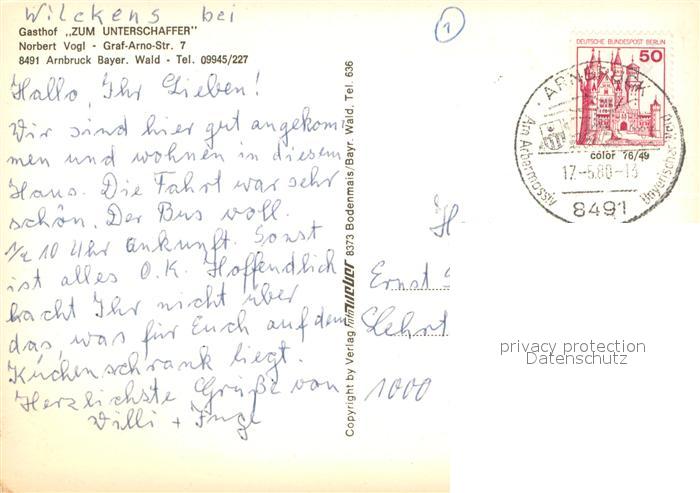 Wilckens bei
Gasthof „ZUM UNTERSCHAFFER"
Norbert Vogl - Graf-Arno-Str. 7
8491 Arnbruck Bayer. Wald - Tel. 09945/227
Hallo, Ihr Lieben!
Wir sind hier gut angekom-
men und wohnen in diesem
Haus. Die Fahrt war sehr
schön. Der Bus voll.
1/2 10 Uhr Ankunft. Sonst
ist alles O.K. Hoffendlich
lacht Ihr nicht über
das, was für Euch auf dem
Küchenschrank liegt.
Herzlichste Grüße von
Willi + Inge
Copyright by Verlag foto weber 8373 Bodenmais/Bayr. Wald, Tel. 636
1
DEUTSCHE BUNDESPOST BERLIN
50
ARNBRUCK
Am Arbermassiv
Bayerischer Wald
color 76/49
17.-5.80-13
8491
H
Ernst
1000
privacy protection
Datenschutz